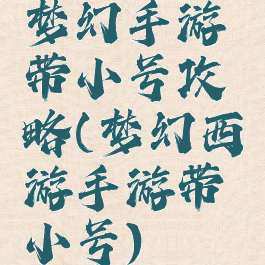 梦幻手游
带小号攻
略(梦幻西
游手游带
小号)